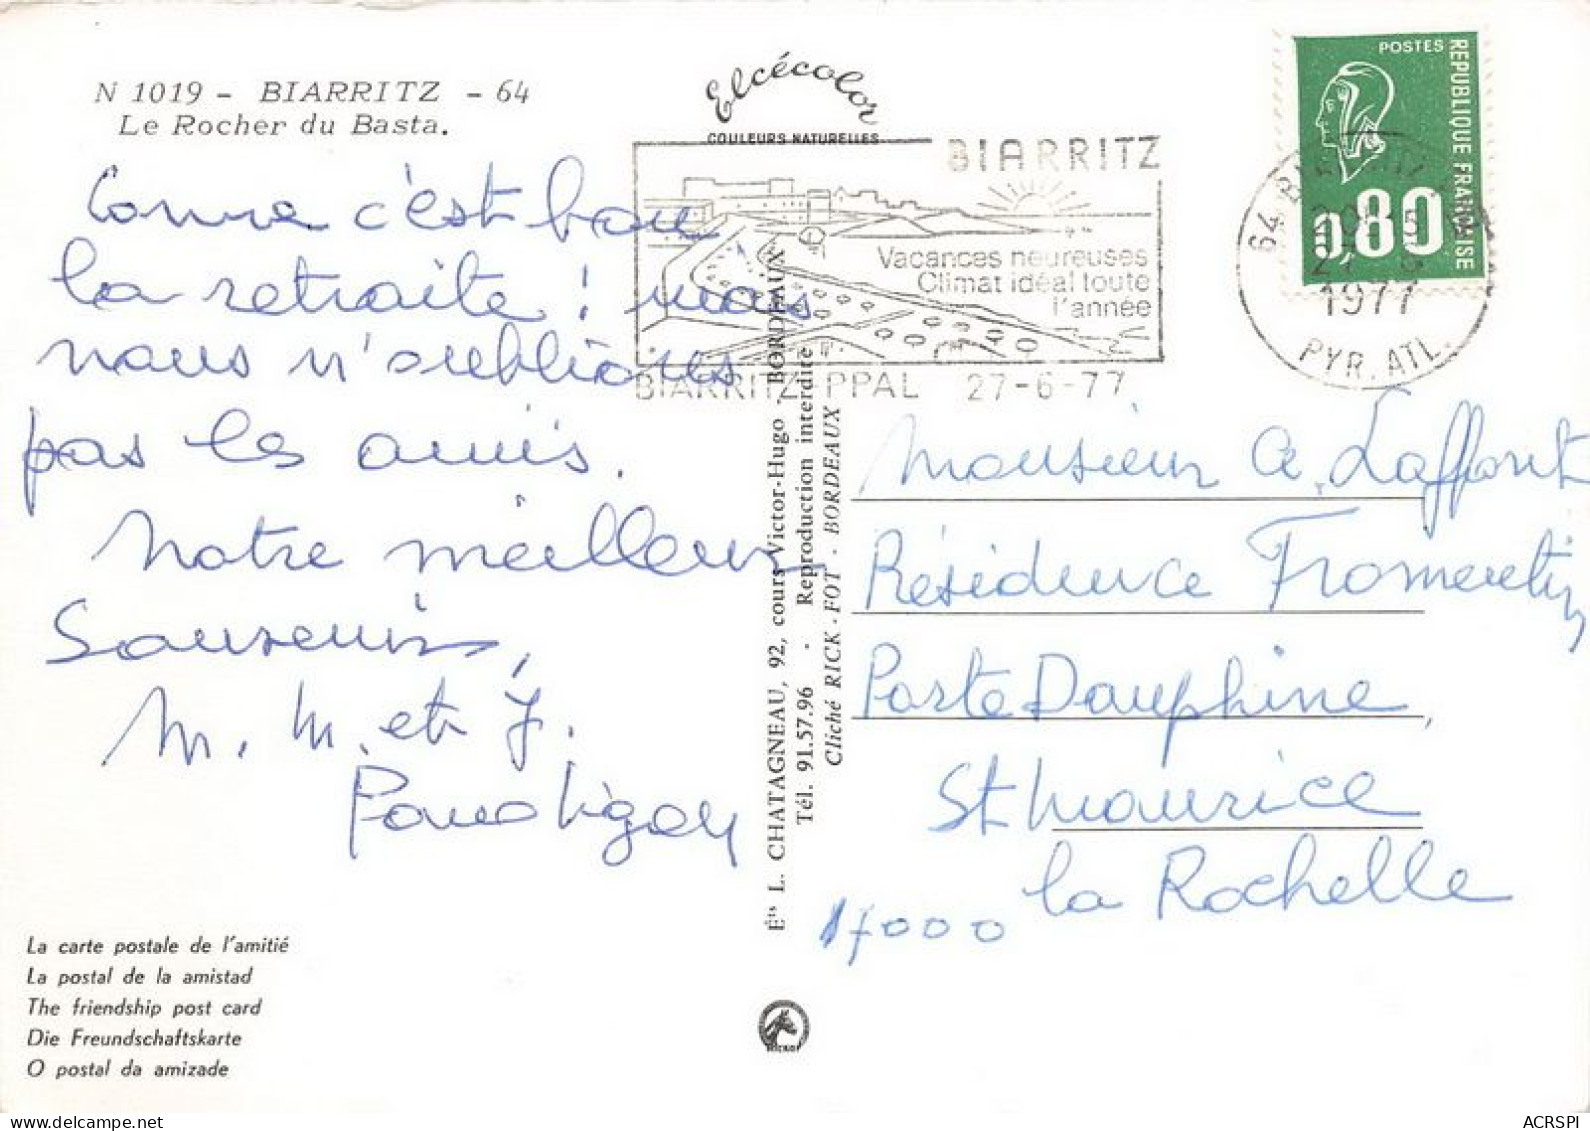 N 1019 - BIARRITZ - 64
Le Rocher du Basta.
Elcécolor
COULEURS NATURELLES
Comme c'est bon
la retraite ! mais
nous n'oublions
pas les amis.
Notre meilleur
Souvenir,
M. M. et J.
BIARRITZ
Vacances heureuses
Climat idéal toute
l'année
BIARRITZ PPAL 27-6-77
POSTES
REPUBLIQUE FRANÇAISE
0,80
64 BIARRITZ
1977
PYR. ATL.
Éts L. CHATAGNEAU, 92, cours Victor-Hugo - BORDEAUX
Tél. 91.57.96 - Reproduction interdite
Cliché RICK-FOT - BORDEAUX
Monsieur A. Laffont
Résidence Fromentin
Porte Dauphine,
St Maurice
la Rochelle
17000
La carte postale de l'amitié
La postal de la amistad
The friendship post card
Die Freundschaftskarte
O postal da amizade
ACRSPI